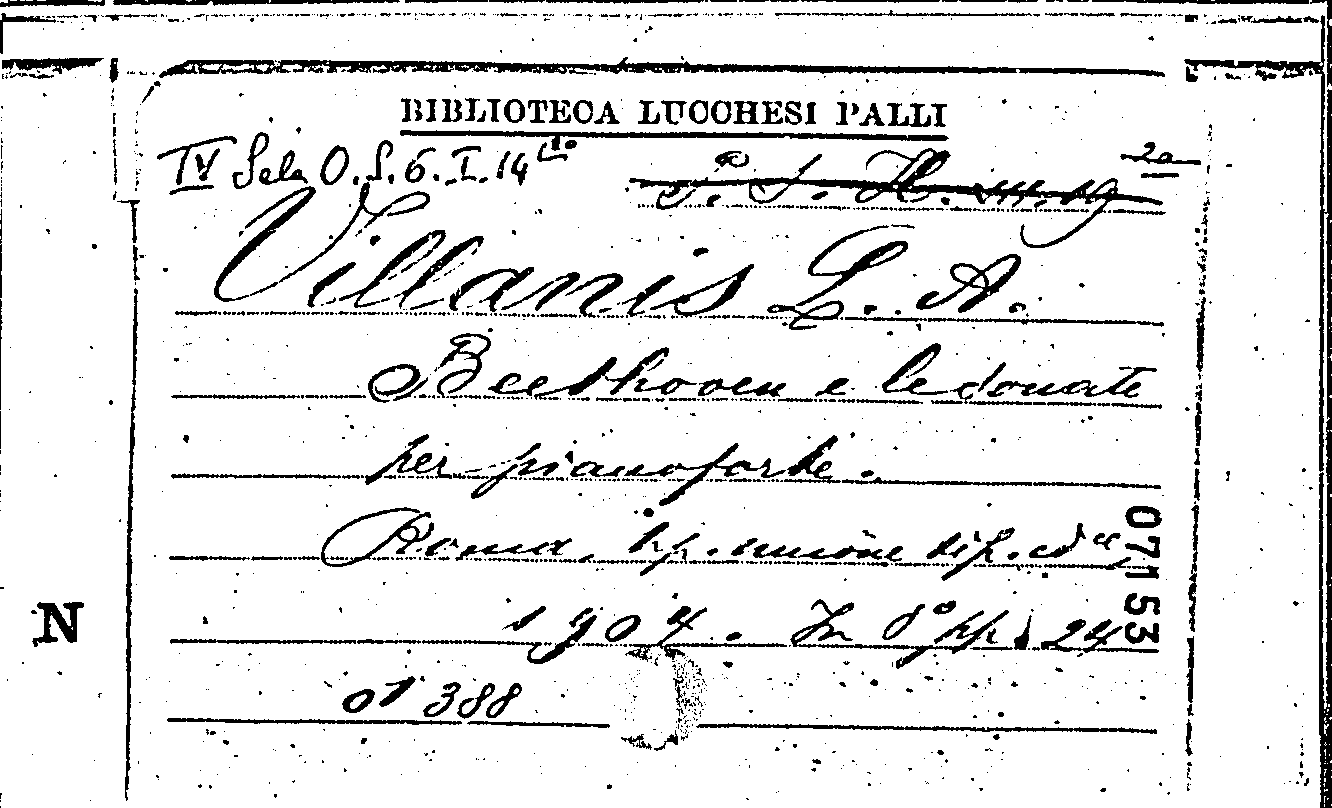 BIBLIOTECA LUCCHESI PALLI
IV Sala O.S.6.I.14
Villanis L. A.
Beethoven e le sonate
per pianoforte.
Roma, tip. unione
1904. In 8° pp. 24
388
07153
N